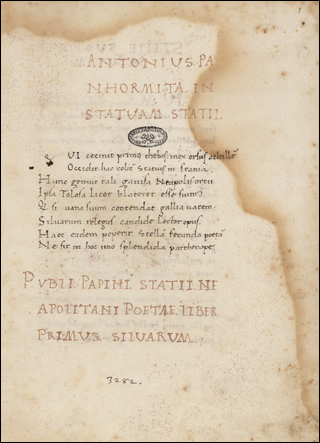 ANTONIUS PA
NHORMITA IN
STATUAM STATII.
QVI cecinit primo thebas mox orsus achille
Occidit hac voluit Statius in statua.
Hunc genuit tali gavisa Neapolis ortu
Ipsa Tolosa licet blateret esse suum
Q si vana suum contendat gallia vatem.
Siluarum relegas candide lector opus
Haec eadem peperit Stella fecunda poeta
Ne sit in hoc uno splendida parthenope.
PUBLI. PAPINI. STATII. NE
APOLITANI POETAE. LIBER
PRIMUS SILUARUM.
3282.